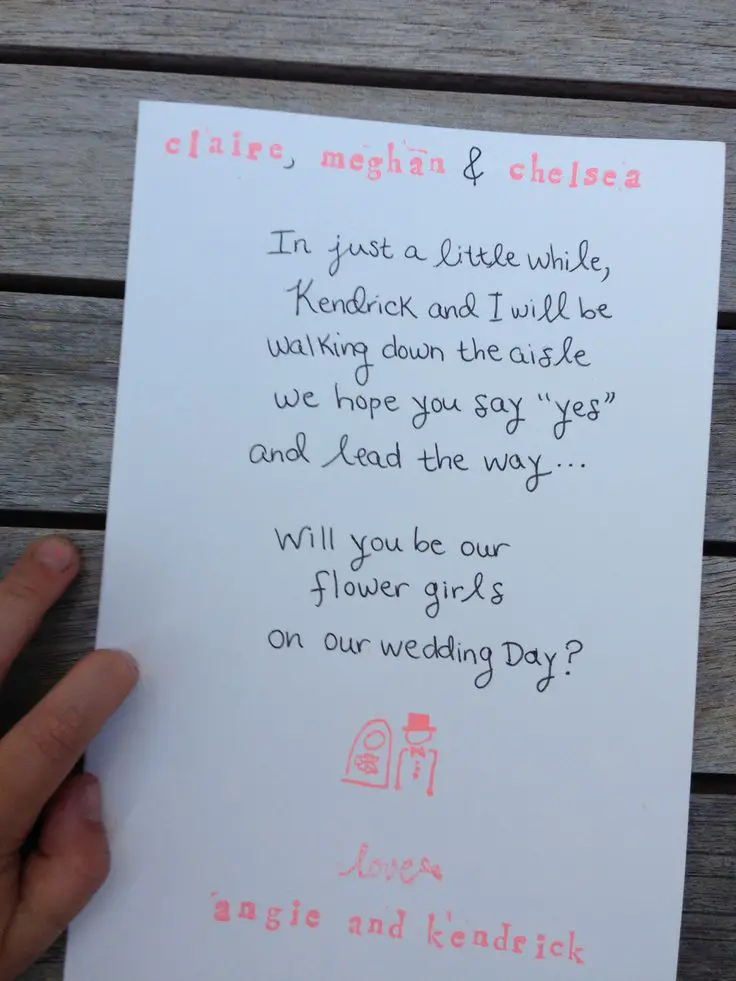 claire, meghan & chelsea
In just a little while,
Kendrick and I will be
walking down the aisle
we hope you say "yes"
and lead the way...
Will you be our
flower girls
on our wedding Day?
love
angie and kendrick